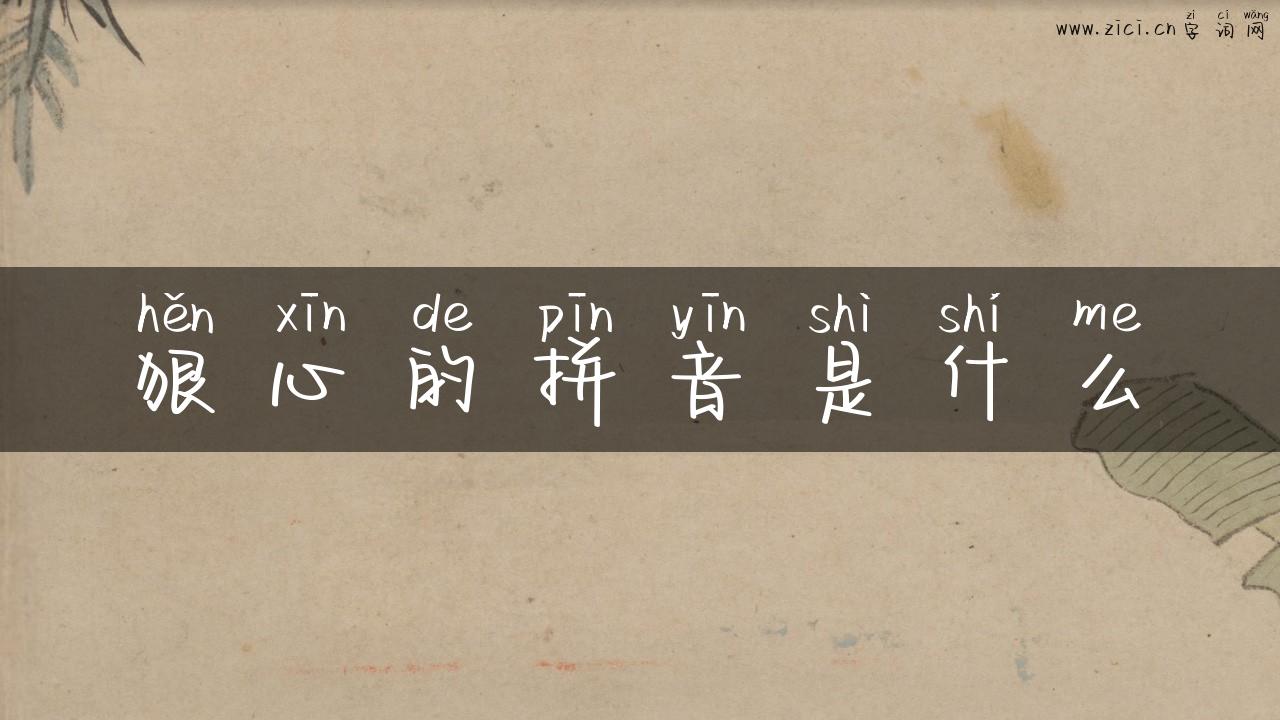 zì cí wǎng
www.zici.cn 字 词 网
hěn xīn de pīn yīn shì shí me
狠 心 的 拼 音 是 什 么